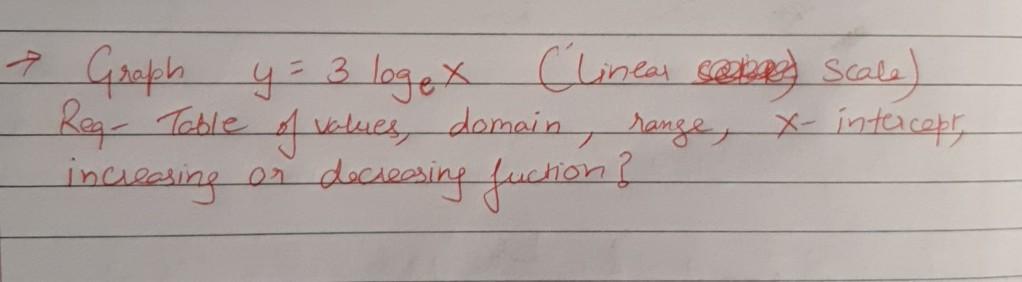 → Graph y = 3 logₑ x (Linear Scale)
Req- Table of values, domain, range, x-intercept,
increasing or decreasing fuction?